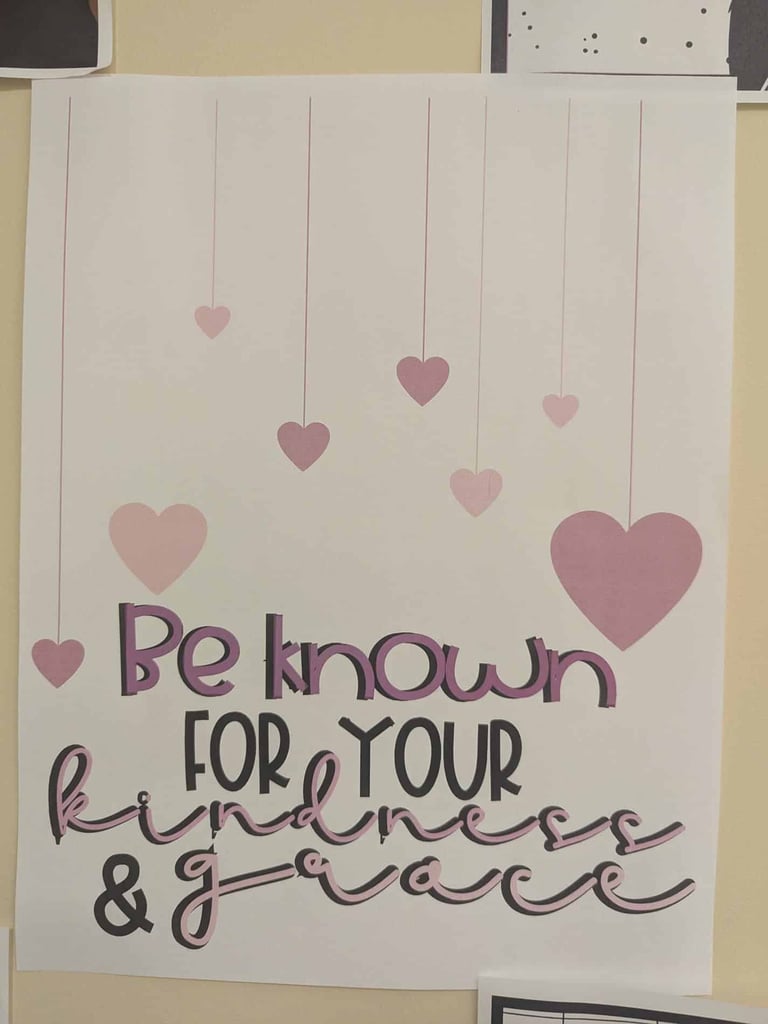 Be known
FOR YOUR
kindness
& grace